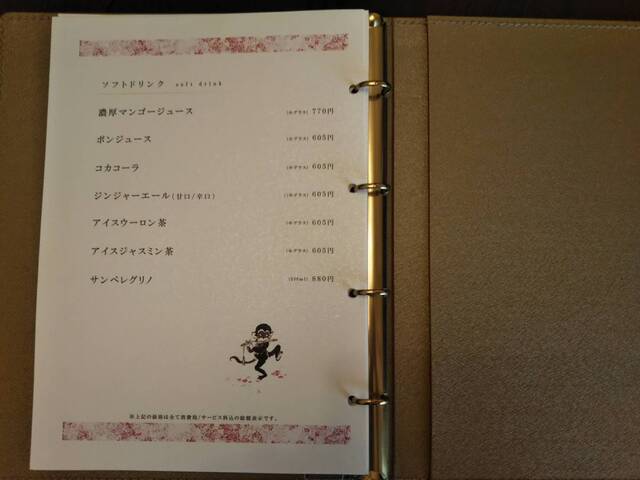 ソフトドリンク soft drink
濃厚マンゴージュース (※グラス) 770円
ポンジュース (※グラス) 605円
コカコーラ (※グラス) 605円
ジンジャーエール(甘口/辛口) 605円
アイスウーロン茶 (※グラス) 605円
アイスジャスミン茶 (※グラス) 605円
サンペレグリノ 880円
※上記の価格は全て消費税/サービス料込の総額表示です。